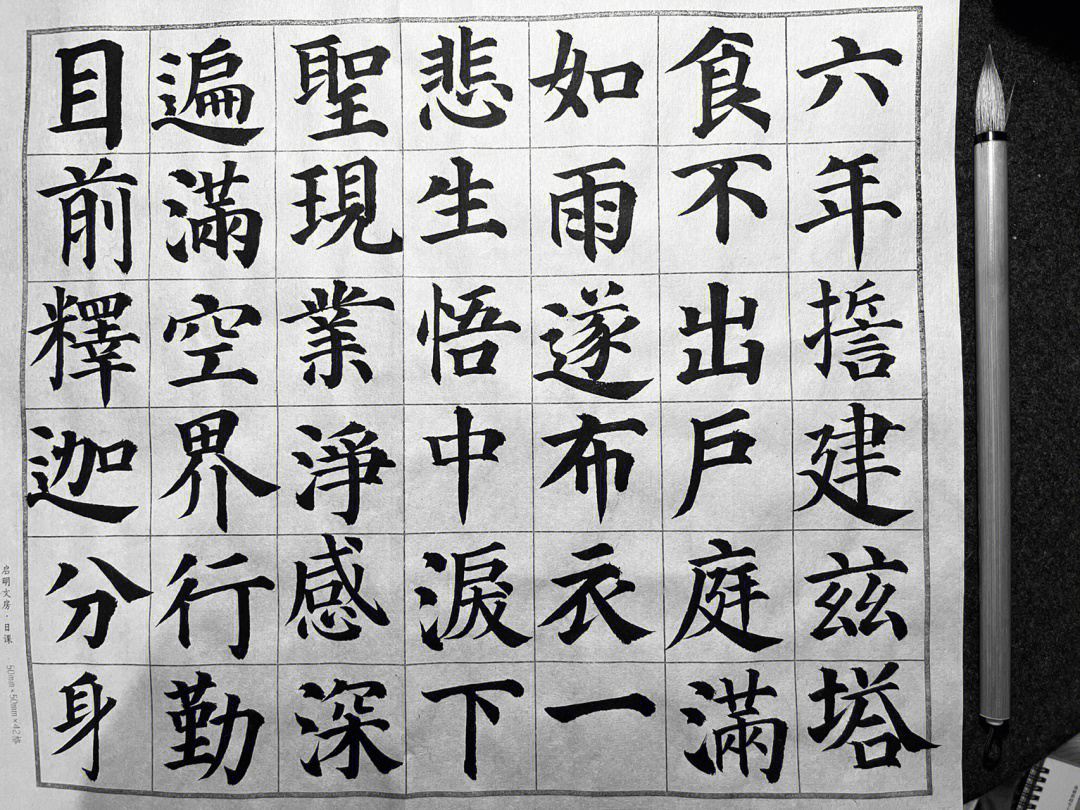 六年擔建兹塔
食不出戶庭滿
如雨遂布衣一
悲生悟中淚下
聖現業淨感深
遍滿空界行勤
目前釋迦分身
启明文房·日课
50mm×50mm×42格